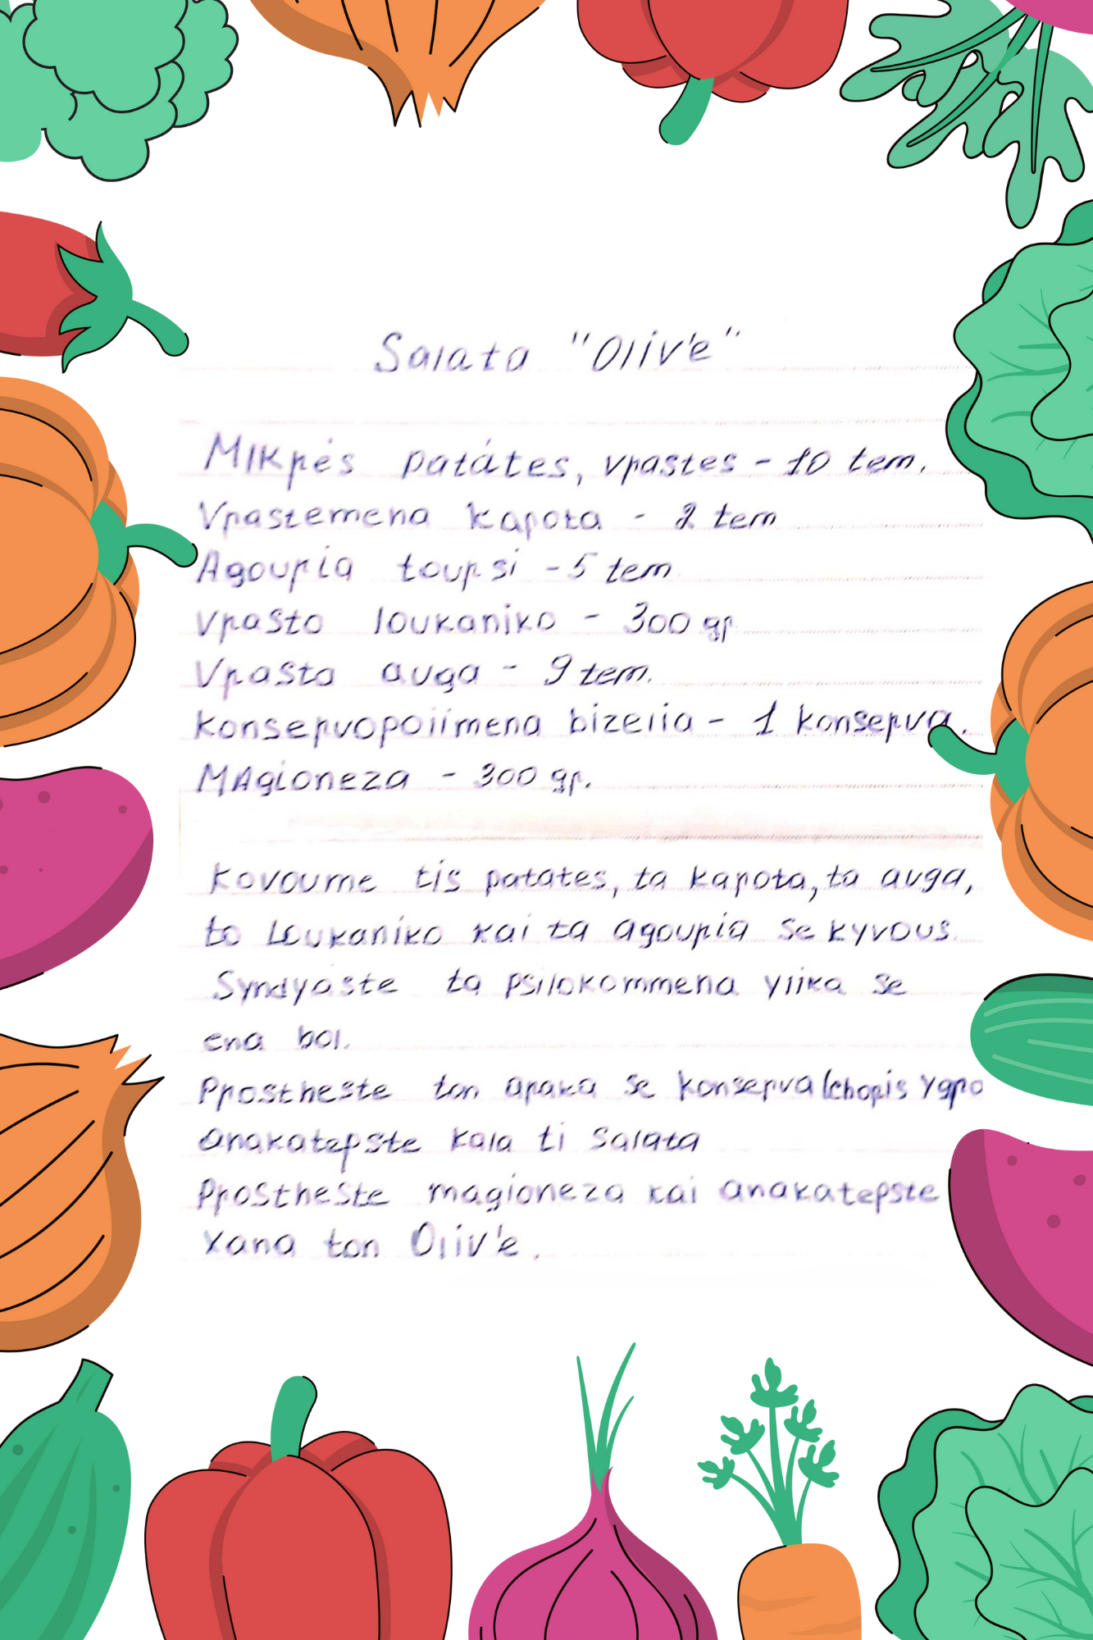 Salata "Oliv'e"
Mikpés patátes, vpastes - 10 tem.
Vpastemena kapota - 2 tem
Agoupia toupsi - 5 tem
Vpasto loukaniko - 300 gp
Vpasta auga - 9 tem.
Konsepvopoiimena bizelia - 1 konsepva.
MAgioneza - 300 gp.
Kovoume tis patates, ta kapota, ta auga,
to Loukaniko kai ta agoupia se kyvous.
Syndyáste ta psilokommena ylika se
ena bol.
Prostheste ton apaka se konsepva (chopis ygpo
anakatepste kala ti salata
Prostheste magioneza kai anakatepste
xana ton Oliv'e.